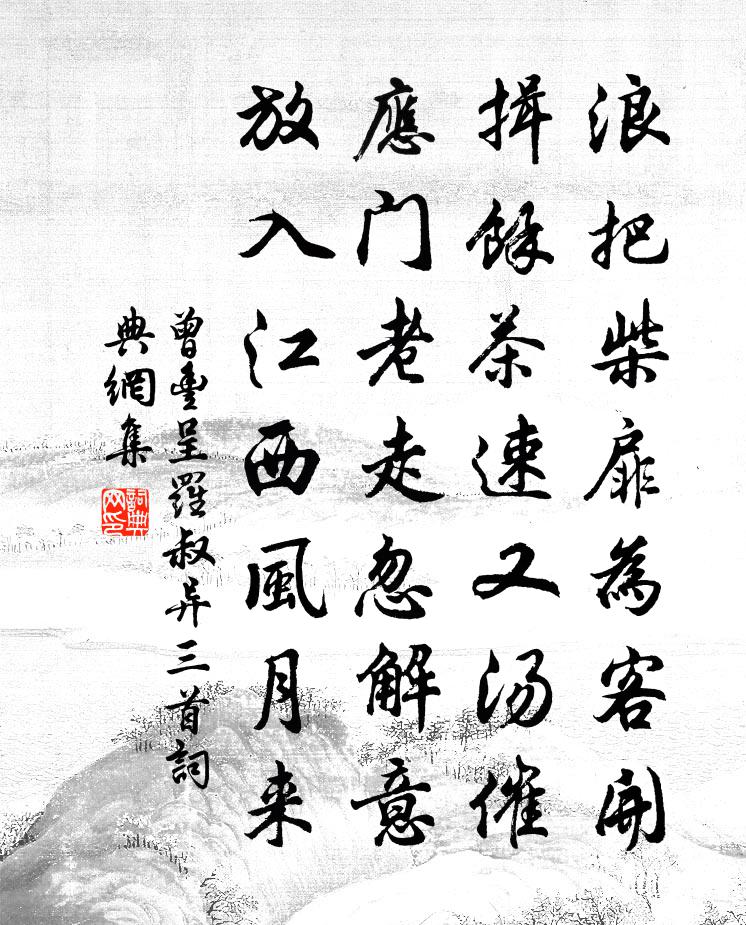 浪把柴扉為客開
揖餘茶速又汤催
應门老走忽解意
放入江西風月来
曾豐呈羅叔异三首詞
典網集
詞典
网印